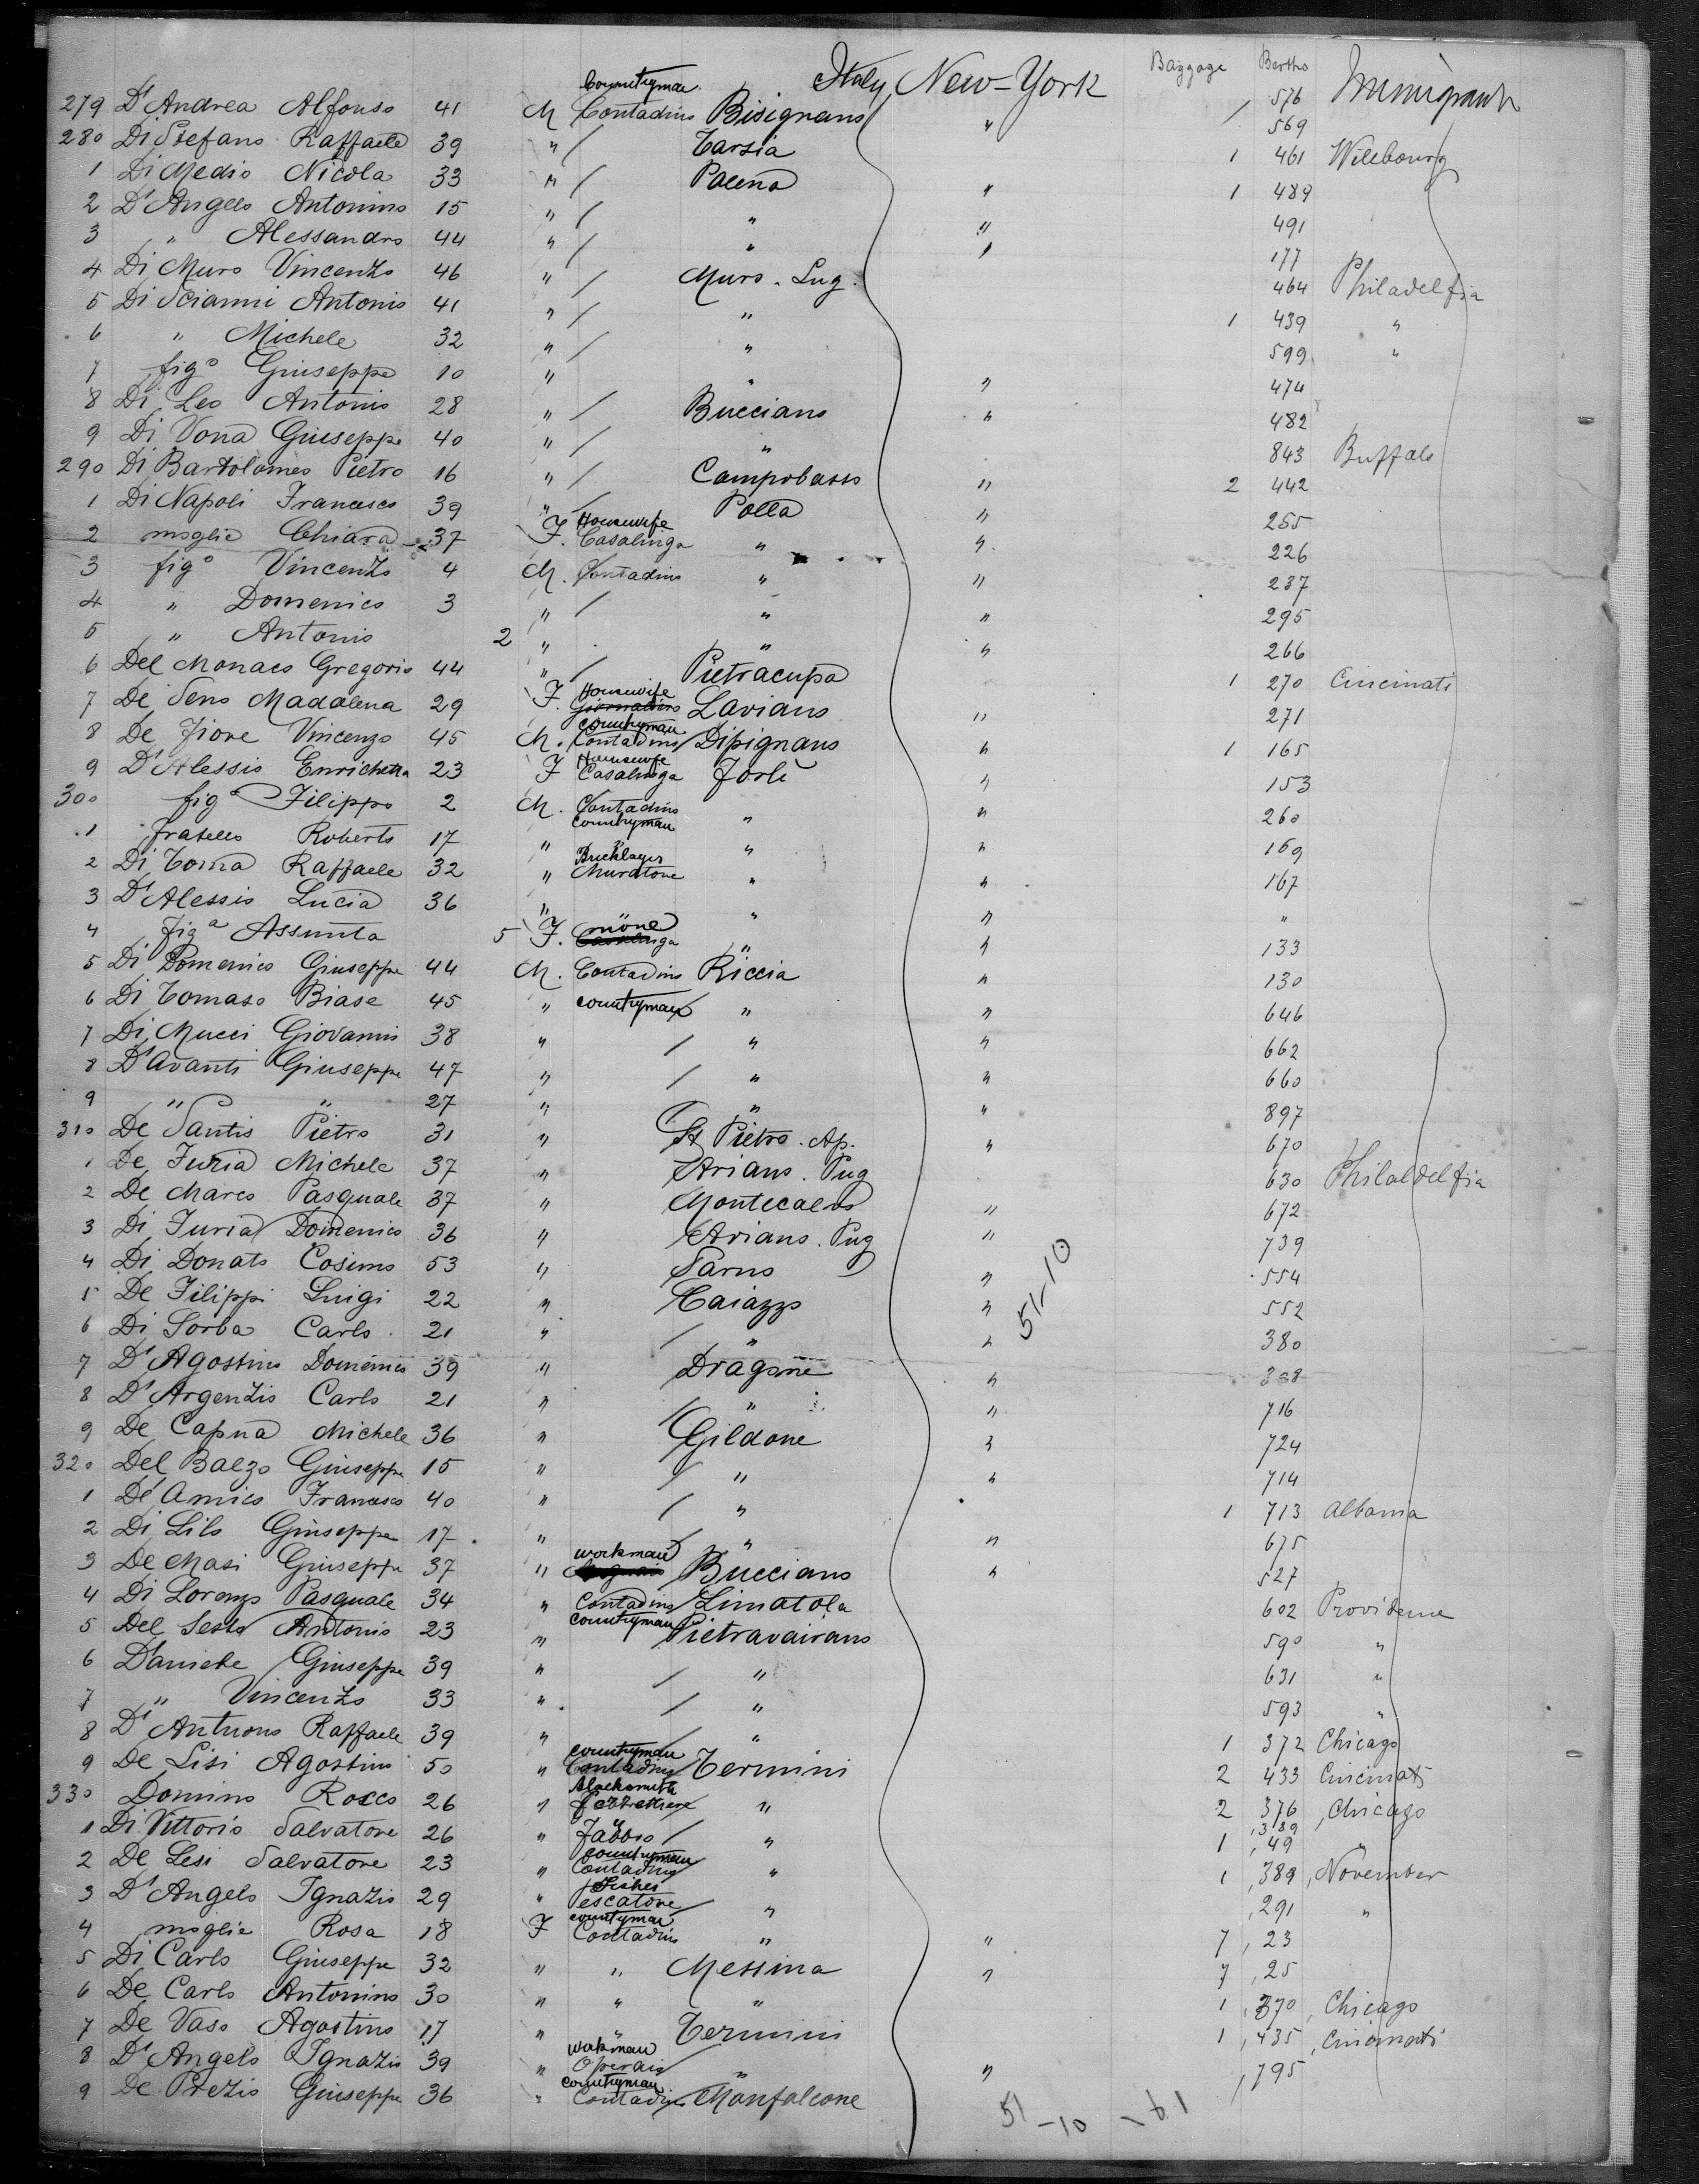 Italy New-York Baggage Berths Immigrants
Countryman
279 D'Andrea Alfonso 41 M Contadino Bisignano " / 576
569
280 Di Stefano Raffaele 39 " / Tarsia 1 461 Willbourg
1 Di Medio Nicola 33 " / Pacena " 1 489
2 D'Angelo Antonino 15 " / " " 491
3 " Alessandro 44 " / " " 177
4 Di Muro Vincenzo 46 " / Muro. Lug. 464 Philadelfia
5 Di Scianni Antonio 41 " / " 1 439 "
6 " Michele 32 " / " 599 "
7 figº Giuseppe 10 " " " 474
8 Di Leo Antonio 28 " / Bucciano " 482
9 Di Vona Giuseppe 40 " / " 843 Buffalo
290 Di Bartolomeo Pietro 16 " / Campobasso " 2 442
1 Di Napoli Francesco 39 " / Polla " 255
Housewife
2 moglie Chiara 37 F. Casalinga " " 226
3 figº Vincenzo 4 M. Contadino " " 237
4 " Domenico 3 " / " " 295
5 " Antonio 2 " " " 266
6 Del Monaco Gregorio 44 " / Pietracupa 1 270 Cincinati
Housewife
7 De Seno Madalena 29 F. Laviano " 271
countryman
8 De Fiore Vincenzo 45 M. Contadino / Dipignano " 1 165
Housewife
9 D'Alessio Enrichetta 23 F Casalinga Forli " 153
300 figº Filippo 2 M. Contadino " " 260
countryman
1 fratello Roberto 17 " " " " 169
Bricklayer
2 Di Toma Raffaele 32 " Muratore " " 167
3 D'Alessio Lucia 36 " " " "
none
4 figª Assunta 5 F. Casalinga " " 133
5 Di Domenico Giuseppe 44 M. Contadino Riccia " 130
6 Di Tomaso Biase 45 " countryman / " " 646
7 Di Mucci Giovanni 38 " / " " 662
8 D'Avanti Giuseppe 47 " / " " 660
9 " " 27 " / " " 897
310 De Santis Pietro 31 " St Pietro. Ap. " 670
1 De Furia Michele 37 " / Ariano. Pug 630 Philaldelfia
2 De Marco Pasquale 37 " / Montecalvo " 672
3 Di Furia Domenico 36 " / Ariano. Pug " 739
4 Di Donato Cosimo 53 " / Sarno " 554
5 De Filippi Luigi 22 " / Caiazzo " 552
6 Di Sorba Carlo 21 " / " " 380
7 D'Agostino Domenico 39 " / Dragone "
8 D'Argenzio Carlo 21 " / " " 716
9 De Capua Michele 36 " / Gildone " 724
320 Del Balzo Giuseppe 15 " / " " 714
1 De Amico Francesco 40 " / " 1 713 Albania
2 Di Lilo Giuseppe 17 " / " " 675
workman
3 De Masi Giuseppe 37 " / Bucciano " 527
4 Di Lorenzo Pasquale 34 " Contadino / Limatola 602 Providence
countryman
5 Del Sesto Antonio 23 " / Pietravairano 590 "
6 Daniele Giuseppe 39 " / " 631 "
7 " Vincenzo 33 " / " 593 "
8 D'Antuono Raffaele 39 " / " 1 372 Chicago
countryman
9 De Lisi Agostino 50 " Contadino / Termini 2 433 Cincinati
blacksmith
330 Domino Rocco 26 " " 2 376 Chicago
389
1 Di Vittorio Salvatore 26 " Fabbro / " 1 49 "
countryman
2 De Lesi Salvatore 23 " Contadino " 1 389 November
Fisher
3 D'Angelo Ignazio 29 " Pescatore / " 291 "
countryman
4 moglie Rosa 18 F Contadino " " 7 23
5 Di Carlo Giuseppe 32 " " Messina " 7 25
6 De Carlo Antonino 30 " " " 1 370 Chicago
7 De Vaso Agostino 17 " " Termini 1 435 Cincinati
workman
8 D'Angelo Ignazio 39 " Operaio / " " 795
countryman
9 De Prezio Giuseppe 36 " Contadino / Monfalcone
51-10
51-10